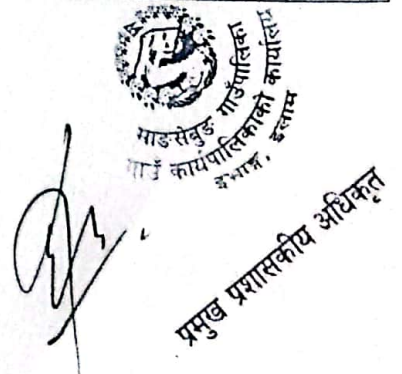 माङसेबुङ गाउँपालिका
गाउँ कार्यपालिकाको कार्यालय
इलाम
प्रमुख प्रशासकीय अधिकृत